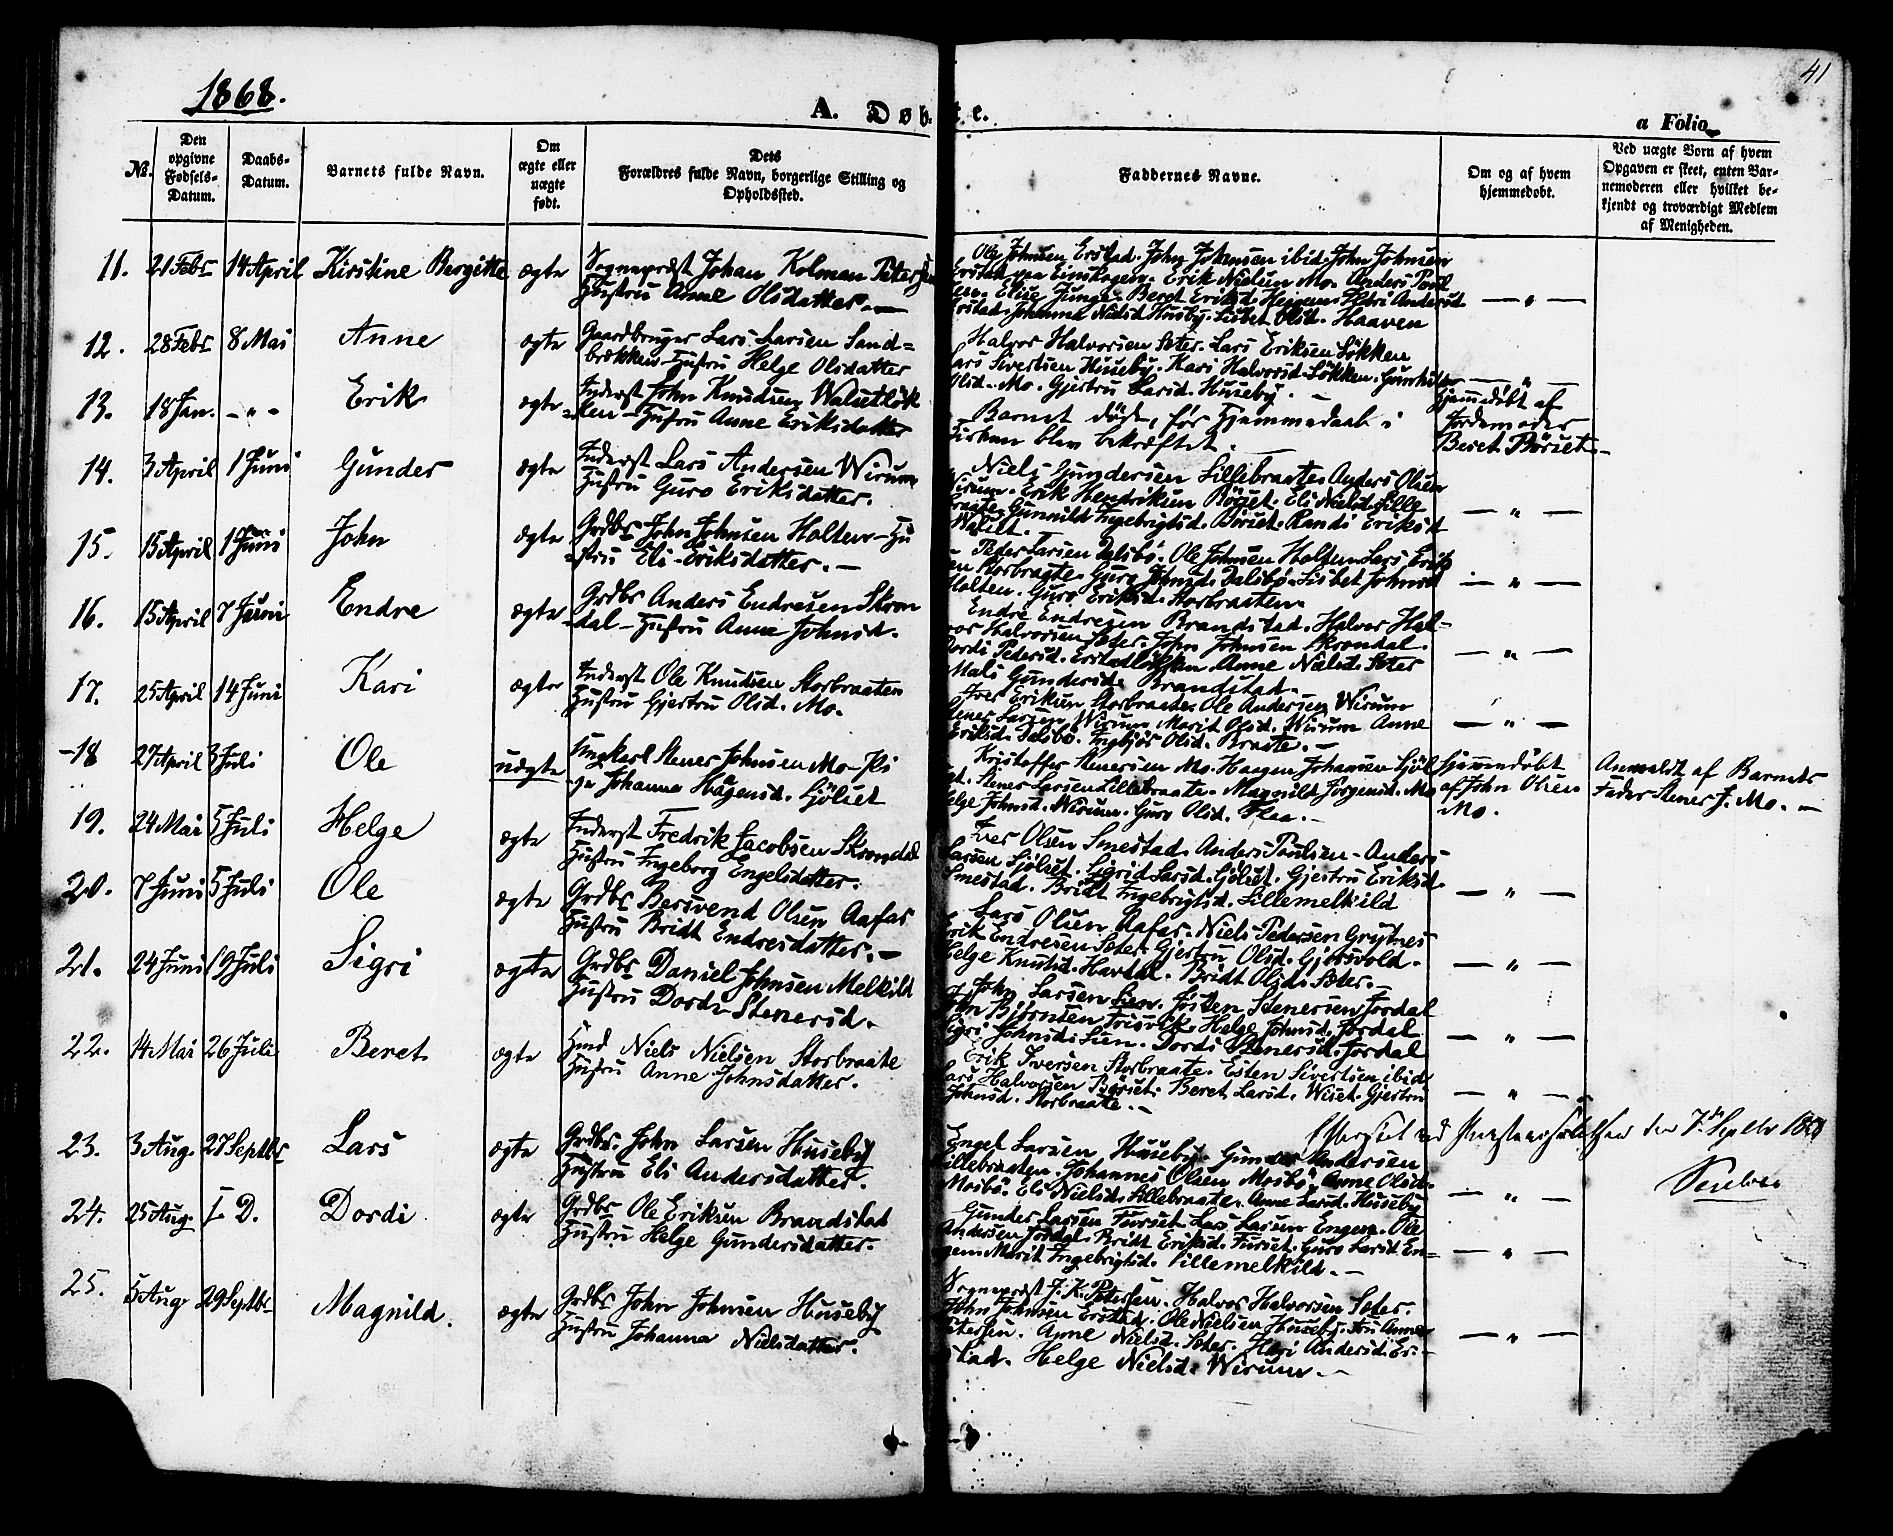 1868.
A. Døb-
te.
41
a Folio
No.
Den
opgivne
Fødsels-
Datum.
Daabs-
Datum.
Barnets fulde Navn.
Om
ægte eller
uægte
født.
Dets
Forældres fulde Navn, borgerlige Stilling og
Opholdssted.
Faddernes Navne.
Om og af hvem
hjemmedøbt.
Ved uægte Børn af hvem
Opgaven er skeet, enten Bar-
nemoderen eller hvilket be-
kjendt og troværdigt Medlem
af Menigheden.
11. 21 Febr 14 April Kirstine Bergitte ægte
Sognepræst Johan Kolman Petersen
Hustru Anne Olsdatter. —
Ole Johnsen Erstad. John Johnsen ibid. John Johnsen
Erik Nielsen Mo. Anders
Elise Junge. Beret Eriksd. Anderd
Johanna Nielsd. Huseby. Lisbet Olsd. Haaven
— " —
12. 28 Febr 8 Mai Anne ægte
Gaardbruger Lars Larsen Sand=
bækken Hustru Helge Olsdatter
Halvor Halvorsen Sæter. Lars Eriksen Løkken
Lars Sivertsen Huseby. Kari Halvorsd. Løkken. Gunhild
Olsd. Mo. Gjertru Larsd. Huseby. —
— " —
13. 18 Jan. - " - Erik ægte
Inderst John Knudsen Walsetløk
ken - Hustru Anne Eriksdatter
Barnet døde, før Hjemmedaab i
Kirken blev bekræftet. —
Hjemmedøbt af
Jordemoder
Beret Børset. —
14. 3 April 1 Juni Gunder ægte
Inderst Lars Andersen Wirum
Hustru Guro Eriksdatter.
Niels Gundersen Lillebraate. Anders Olsen
Wirum. Erik Hendriksen Børset. Eli Nielsd. Lille
braate. Gunnild Ingebrigtsd. Børset. Randi Eriksd
Walset. —
— " —
15. 15 April 1 Juni John ægte
Grdbr John Johnsen Holten - Hu
stru Eli Eriksdatter. —
Peder Larsen Dalsbø. Ole Johnsen Holten. Lars Erik
sen Storbraate. Guro Johnsd. Dalsbø. Lisbet Johnsd
Holten. Guro Eriksd. Storbraaten.
— " —
16. 15 April 7 Juni Endre ægte
Grdbr Anders Endresen Skron
dal - Hustru Anne Johnsd.
Endre Endresen Brandstad. Halvor Hal-
vor Halvorsen Sæter. John Johnsen Skrondal.
Dordi Pedersd. Erstadløkken Anne Nielsd. Sæter
Mali Gundersd. Brandstad.
— " —
17. 25 April 14 Juni Kari ægte
Inderst Ole Knudsen Storbraaten
Hustru Gjertru Olsd. Mo.
Iver Eriksen Storbraate. Ole Andersen Wirum
Stener Larsen Wirum. Marit Olsd. Wirum Anne
Eriksd. Dalsbø. Ingbjør Olsd. Braate. —
— " —
18 27 April 3 Juli Ole uægte
Ungkarl Stener Johnsen Mo - Pi
ge Johanna Hågensd. Sjølset
Kristoffer Stenersen Mo. Haagen Johansen Sjøl
set. Stener Larsen Lillebraate. Magnild Jørgensd. Mo
Helge Johnsd. Wirum. Guro Olsd. Flaa. —
Hjemmedøbt
af John Olsen
Mo.
Anmeldt af Barnets
Fader Stener J. Mo. —
19. 24 Mai 5 Juli Helge ægte
Inderst Fredrik Jacobsen Skrondal
Hustru Ingeborg Engelsdatter.
Iver Olsen Smestad. Anders Poulsen - Anders
Larsen Sjølset. Sigrid Larsd. Sjølset. Gjertru Eriksd.
Smestad. Bridt Ingebrigtsd. Lillemelkild
— " —
20. 7 Juni 5 Juli Ole ægte
Grdbr Bersvend Olsen Aafar
Hustru Bridt Endresdatter. —
Lars Olsen Aafar. Niels Pedersen Grytnes
Erik Endresen Sæter. Gjertru Olsd. Gjørsvold.
Helge Knutsd. Havdal. Bridt Olsd. Sæter. —
— " —
21. 24 Juni 19 Juli Sigri ægte
Grdbr Daniel Johnsen Melkild
Hustru Dordi Stenersd.
John Larsen Lien. Josten Stenersen Jordal
John Bjørnsen Trisvik. Helge Johnsd. Jordal
Sigri Johnsd. Lien. Dordi Stenersd. Jordal
— " —
22. 14 Mai 26 Juli Beret ægte
Niels Nielsen Storbraate
Hustru Anne Johnsdatter.
Erik Iversen Storbraate. Esten Sivertsen ibid
Lars Halvorsen Børset. Beret Larsd. Wiset. Gjertru
Johnsd. Storbraate. —
— " —
Efterseet ved den 7de Septbr 1868
23. 3 Aug. 27 Septbr Lars ægte
Grdbr. John Larsen Huseby
Hustru Eli Andersdatter.
Engel Larsen Huseby. Gunder Andersen
Lillebraaten. Johannes Olsen Mosbø. Anne Olsd.
Mosbø. Eli Nielsd. Lillebraate. Anne Larsd. Huseby
— " —
24. 25 Aug. I D. Dordi ægte
Grdbr Ole Eriksen Brandstad
Hustru Helge Gundersdatter.
Gunder Larsen Furset. Lars Larsen Engen. Ole
Andersen Jordal. Bridt Eriksd. Furset. Guro Larsd. En=
gen. Marit Ingebrigtsd. Lillemelkild. —
— " —
25. 5 Aug 29 Septbr Magnild. ægte
Grdbr John Johnsen Huseby
Hustru Johanna Nielsdatter.
Sognepræst J. K. Petersen. Halvor Halvorsen Sæter.
John Johnsen Erstad. Ole Nielsen Huseby. Fru Anne
Petersen. Anne Nielsd. Sæter. Andersd. Er-
stad. Helge Nielsd. Wirum. —
— " —